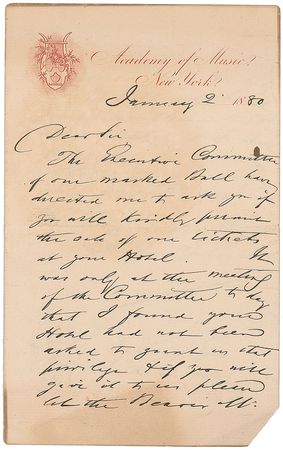 Academy of Music,
New York,
January 2 1880
Dear Sir
The Executive Committee
of our masked Ball have
directed me to ask you if
you will kindly permit
the sale of our tickets
at your Hotel. It
was only at the meeting
of the Committee to day
that I found your
Hotel had not been
asked to grant us that
privilege & if you will
give it to us please
let the Bearer Mr.